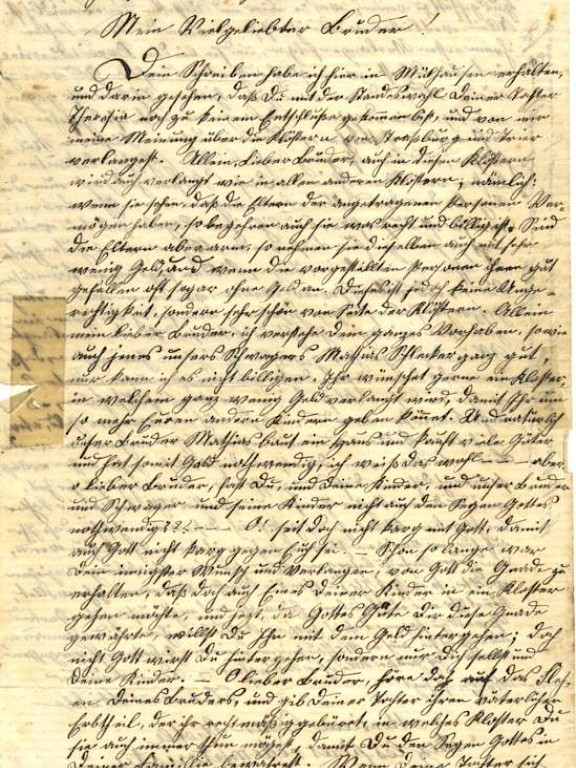 Mein Vielgeliebter Bruder!
Dein Schreiben habe ich hier in Mülhausen erhalten,
und darin gesehen, daß Du mit der Standeswahl Deiner Tochter
Theresia noch zu keinem Entschluße gekommen bist, und von mir
meine Meinung über die Klöstern von Straßburg und Trier
verlangest. Allein, lieber Bruder, auch in diesen Klöstern
wird auch verlangt wie in allen anderen Klöstern; nämlich:
wenn sie sehen, daß die Eltern der angetragenen Personen Ver-
mögen haben, so begehren auch sie was recht und billig ist. Sind
die Eltern aber arm, so nehmen sie dieselben auch mit sehr
wenig Geld, und wenn die vorgestellten Personen ihnen gut
gefallen oft sogar ohne Geld an. Dieses ist jedoch keine Unge-
rechtigkeit, sondern sehr schön von Seite der Klöstern. Allein
mein lieber Bruder, ich verstehe Dein ganzes Vorhaben, sowie
auch jenes unsers Schwagers Mathias Schlecker ganz gut,
nur kann ich es nicht billigen. Ihr wünschet gerne ein Kloster,
in welchem ganz wenig Geld verlangt wird, damit Ihr um
so mehr Euren andern Kindern geben könnet. Und natürlich
unser Bruder Mathias baut ein Haus und kauft viele Güter
und hat somit Geld nothwendig, ich weiß das wohl — aber
o lieber Bruder, hast Du, und Deine Kinder, und unser Bruder
und Schwager und seine Kinder nicht auch den Segen Gottes
nothwendig?? — O! seit doch nicht karg mit Gott, damit
auch Gott nicht karg gegen Euch sei. — Schon so lange war
Dein innigster Wunsch und Verlangen, von Gott die Gnade zu
erhalten, daß doch auch Eines Deiner Kinder in ein Kloster
gehen möchte, und jetzt, da Gottes Güte Dir diese Gnade
gewährte, willst Du Ihn mit dem Geld hintergehen; doch
nicht Gott wirst Du hintergehen, sondern nur Dich selbst und
Deine Kinder. — O lieber Bruder, höre doch auf das Fleh-
en Deines Bruders, und gib Deiner Tochter ihren väterlichen
Erbtheil, der ihr rechtmäßig gebührt, in welches Kloster Du
sie auch immer thun mögest, damit Du den Segen Gottes in
Deiner Familie bewahrest. Wenn Deine Tochter sich